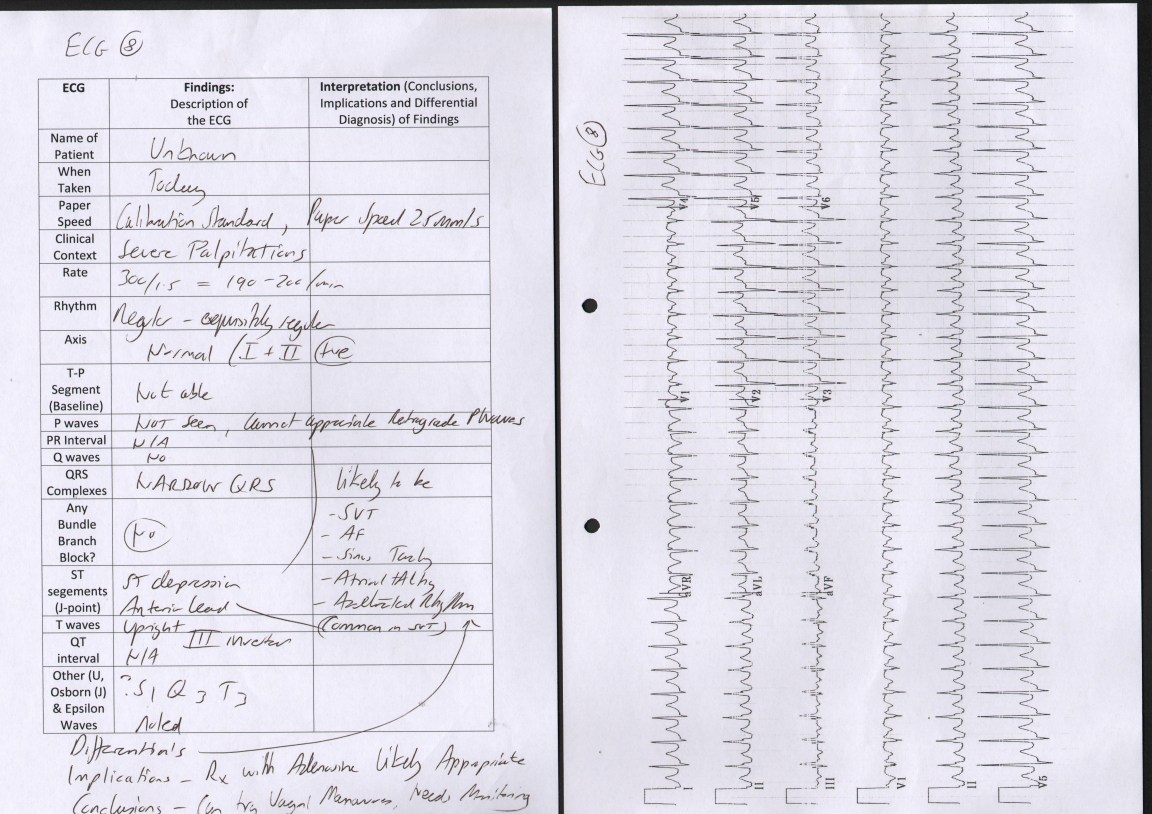 ECG 8
ECG
Findings:
Description of
the ECG
Interpretation (Conclusions,
Implications and Differential
Diagnosis) of Findings
Name of
Patient
Unknown
When
Taken
Today
Paper
Speed
Calibration Standard, Paper Speed 25mm/s
Clinical
Context
Severe Palpitations
Rate
300/1.5 = 190-200/min
Rhythm
Regular -
regular
Axis
Normal (I + II +ve
T-P
Segment
(Baseline)
Not able
P waves
NOT Seen, Cannot appreciate Retrograde P Waves
PR Interval
N/A
Q waves
No
QRS
Complexes
NARROW QRS
likely to be
Any
Bundle
Branch
Block?
No
- SVT
- AF
- Sinus Tachy
ST
segements
(J-point)
ST depression
Anterior Lead
- Atrial
- Rhythm
T waves
Upright III
(Common in SVT)
QT
interval
N/A
Other (U,
Osborn (J)
& Epsilon
Waves
? S1 Q3 T3
Noted
Differentials
Implications - Rx with Adenosine Likely Appropriate
Conclusions - Can try Vagal Manouvres, Needs Monitoring
ECG 8
V4
V5
V6
V1
V2
V3
aVR
aVL
aVF
I
II
III
V1
II
V5